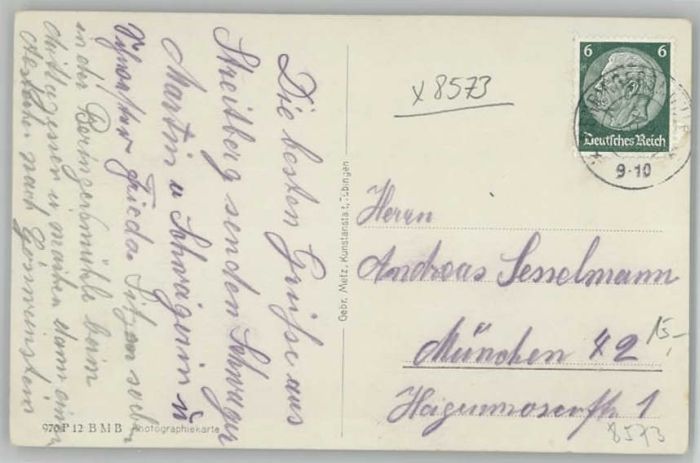 Die besten Grüße aus
Streitberg senden Schwager
Martin u Schwägerin u
Frieda. Sitzen
in der Beringersmühle beim
Mittagessen u machen dann einen
nach Gössweinstein
x 8573
6 6
Deutsches Reich
9-10
Herrn
Andreas Sesselmann
München 42
15,-
1
8573
Gebr. Metz, Kunstanstalt, Tübingen
970 P 12 B M B Photographiekarte